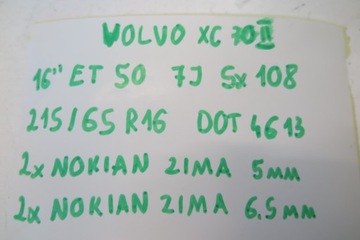 VOLVO XC 70 II
16" ET 50 7J 5x108
215/65 R16 DOT 4613
2x NOKIAN ZIMA 5mm
2x NOKIAN ZIMA 6.5mm